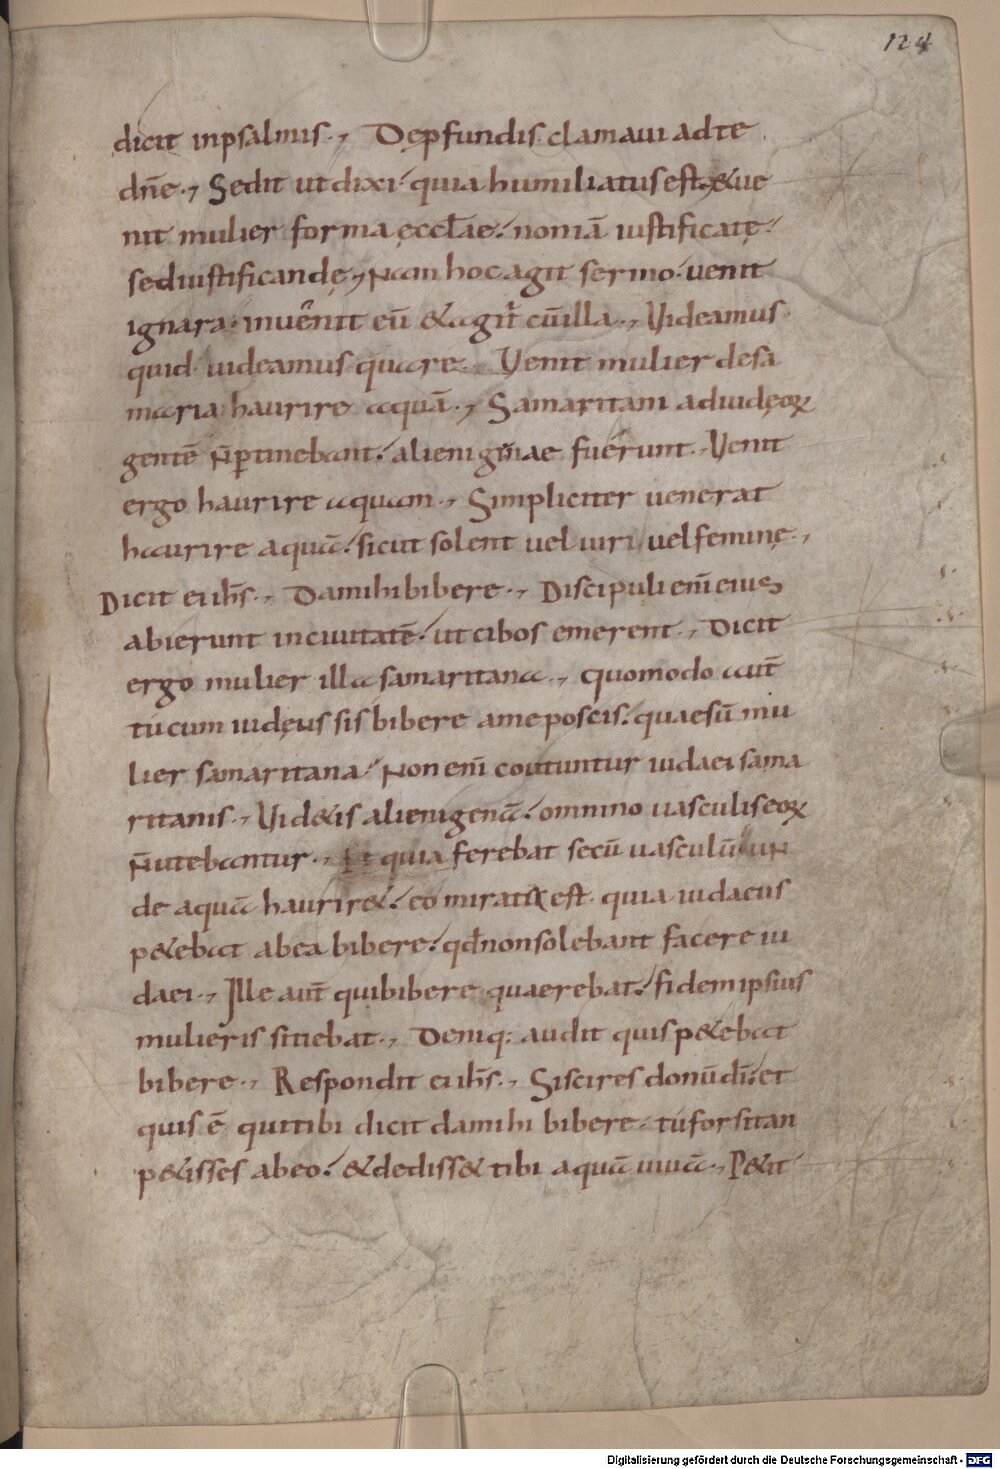 124
dicit inpsalmis., Dep̱fundis clamaui adte
dñe., Sedit ut dixi· quia humiliatus est., & ue
nit mulier forma ęccł̄ae· non iā iustificatę·
sed iustificandę, Nam hoc agit sermo· uenit
ignara· inuenit eū & agit̄ cū illa., Videamus
quid· uideamus quare., Venit mulier desa
maria· haurire aquā., Samaritani ad iudęoꝝ
gentē n̄ ꝑtinebant· alienigenae fuerunt., Venit
ergo haurire aquam., Simpliciter uenerat
haurire aquā· sicut solent uel uiri uel feminę.,
Dicit ei ih̄s., Da mihi bibere., Discipuli eni̅ eius
abierunt in ciuitatē· ut cibos emerent., Dicit
ergo mulier illa samaritana., Quomodo aut̄
tu cum iudęus sis bibere ame poscis· quae sū mu
lier samaritana· Non eni̅ coutuntur iudaei sama
ritanis., Vid&is alienigenā· omnino uasculis eoꝝ
n̄ utebantur., Et quia ferebat secū uasculū uN
de aquā haurir&· eo mirata est· quia iudaeus
p&ebat ab ea bibere· qđ non solebant facere iu
daei., Ille aut̄ qui bibere quaerebat· fidem ipsius
mulieris sitiebat., Deniq: audit quis p&ebat
bibere., Respondit ei ih̄s., Si scires donū dī· et
quis ē qui tibi dicit da mihi bibere· tu forsitan
p&isses ab eo· & dediss& tibi aquā uiuā., P&it
Digitalisierung gefördert durch die Deutsche Forschungsgemeinschaft - DFG